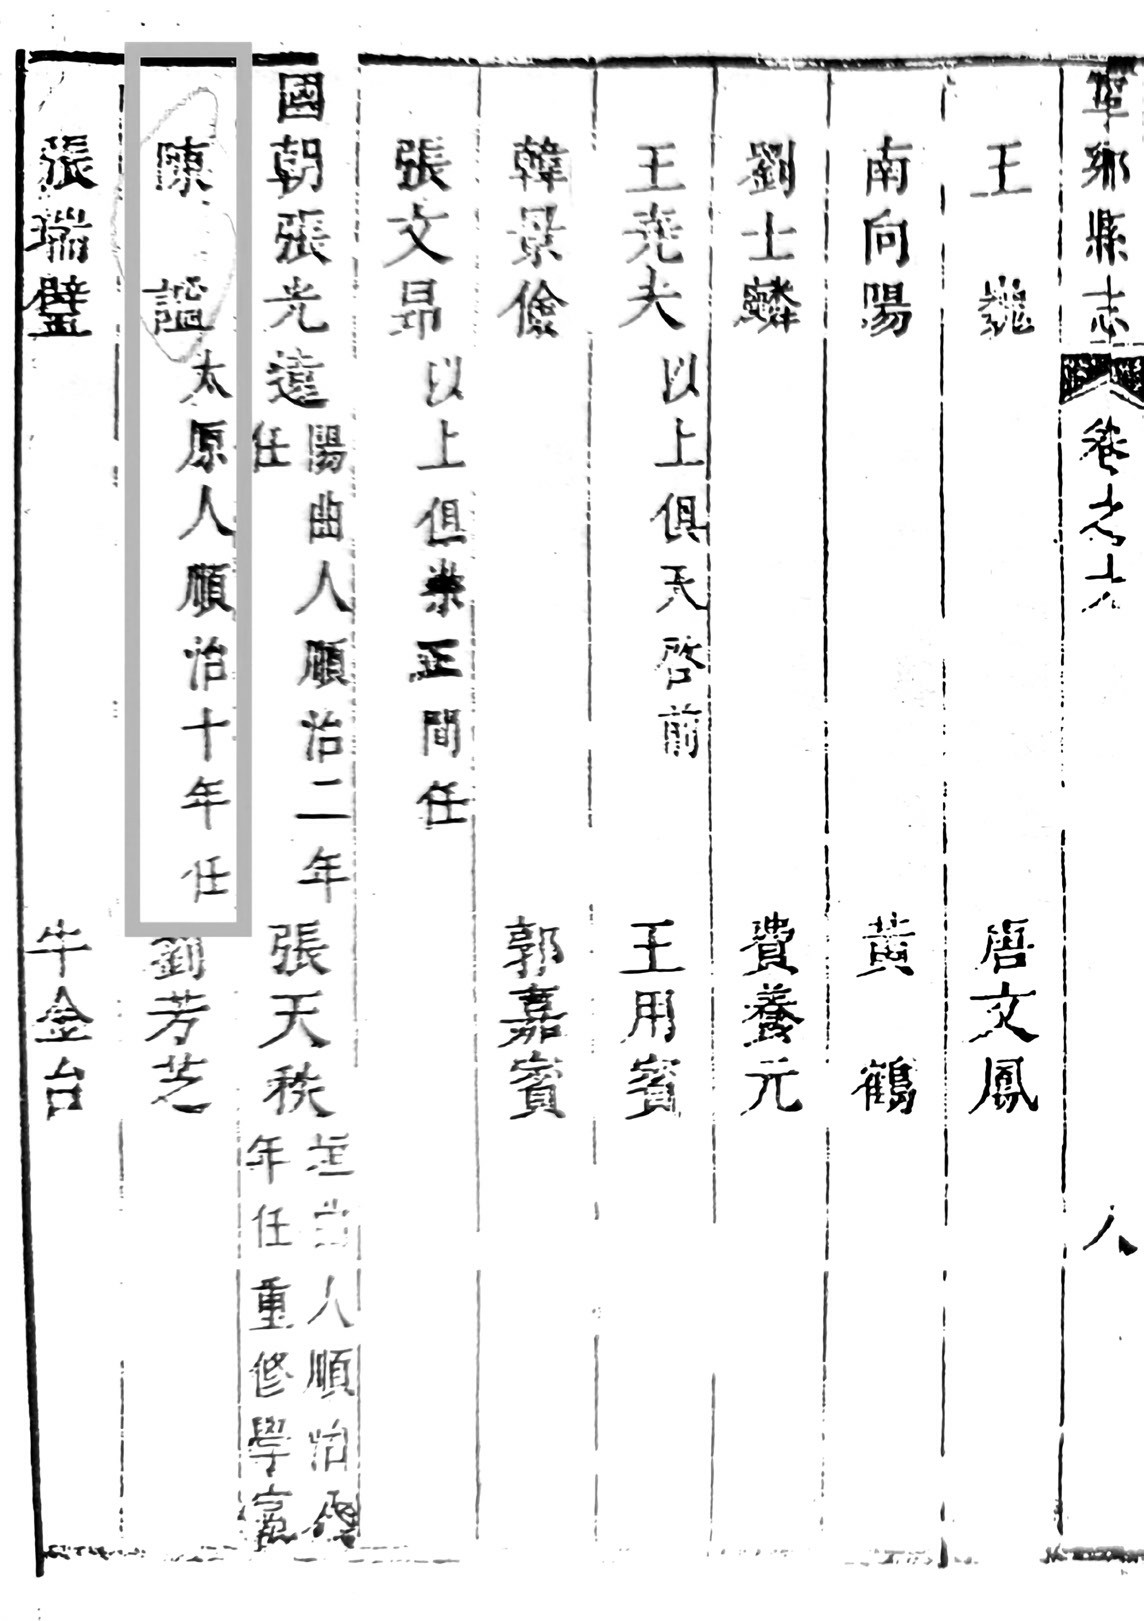 寧鄉縣志 卷之六 八
王巍 唐文鳳
南向陽 黃鶴
劉士麟 費養元
王堯夫 以上俱天啓前 王用賓
韓景儉 郭嘉賓
張文昂 以上俱崇正間任
國朝張光遠 陽曲人順治二年任 張天秩 垣曲人順治 年任重修學宮
陳謐 太原人順治十年任 劉芳芝
張瑞璧 牛金台